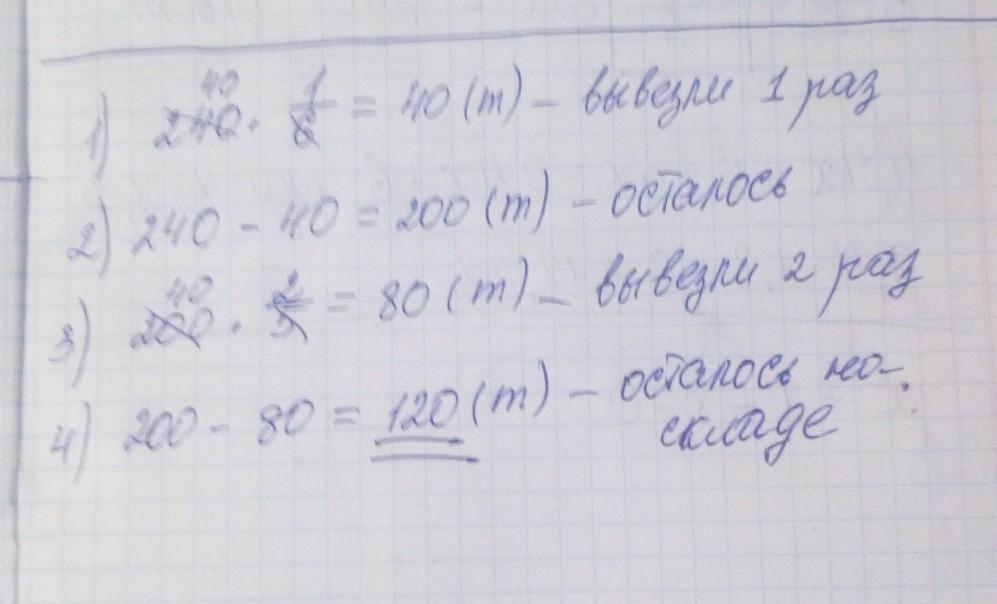 40
1) 240 · 1/6 = 40 (т) – вывезли 1 раз
2) 240 - 40 = 200 (т) – осталось
40
3) 200 · 2/5 = 80 (т) – вывезли 2 раз
4) 200 - 80 = 120 (т) – осталось на
складе